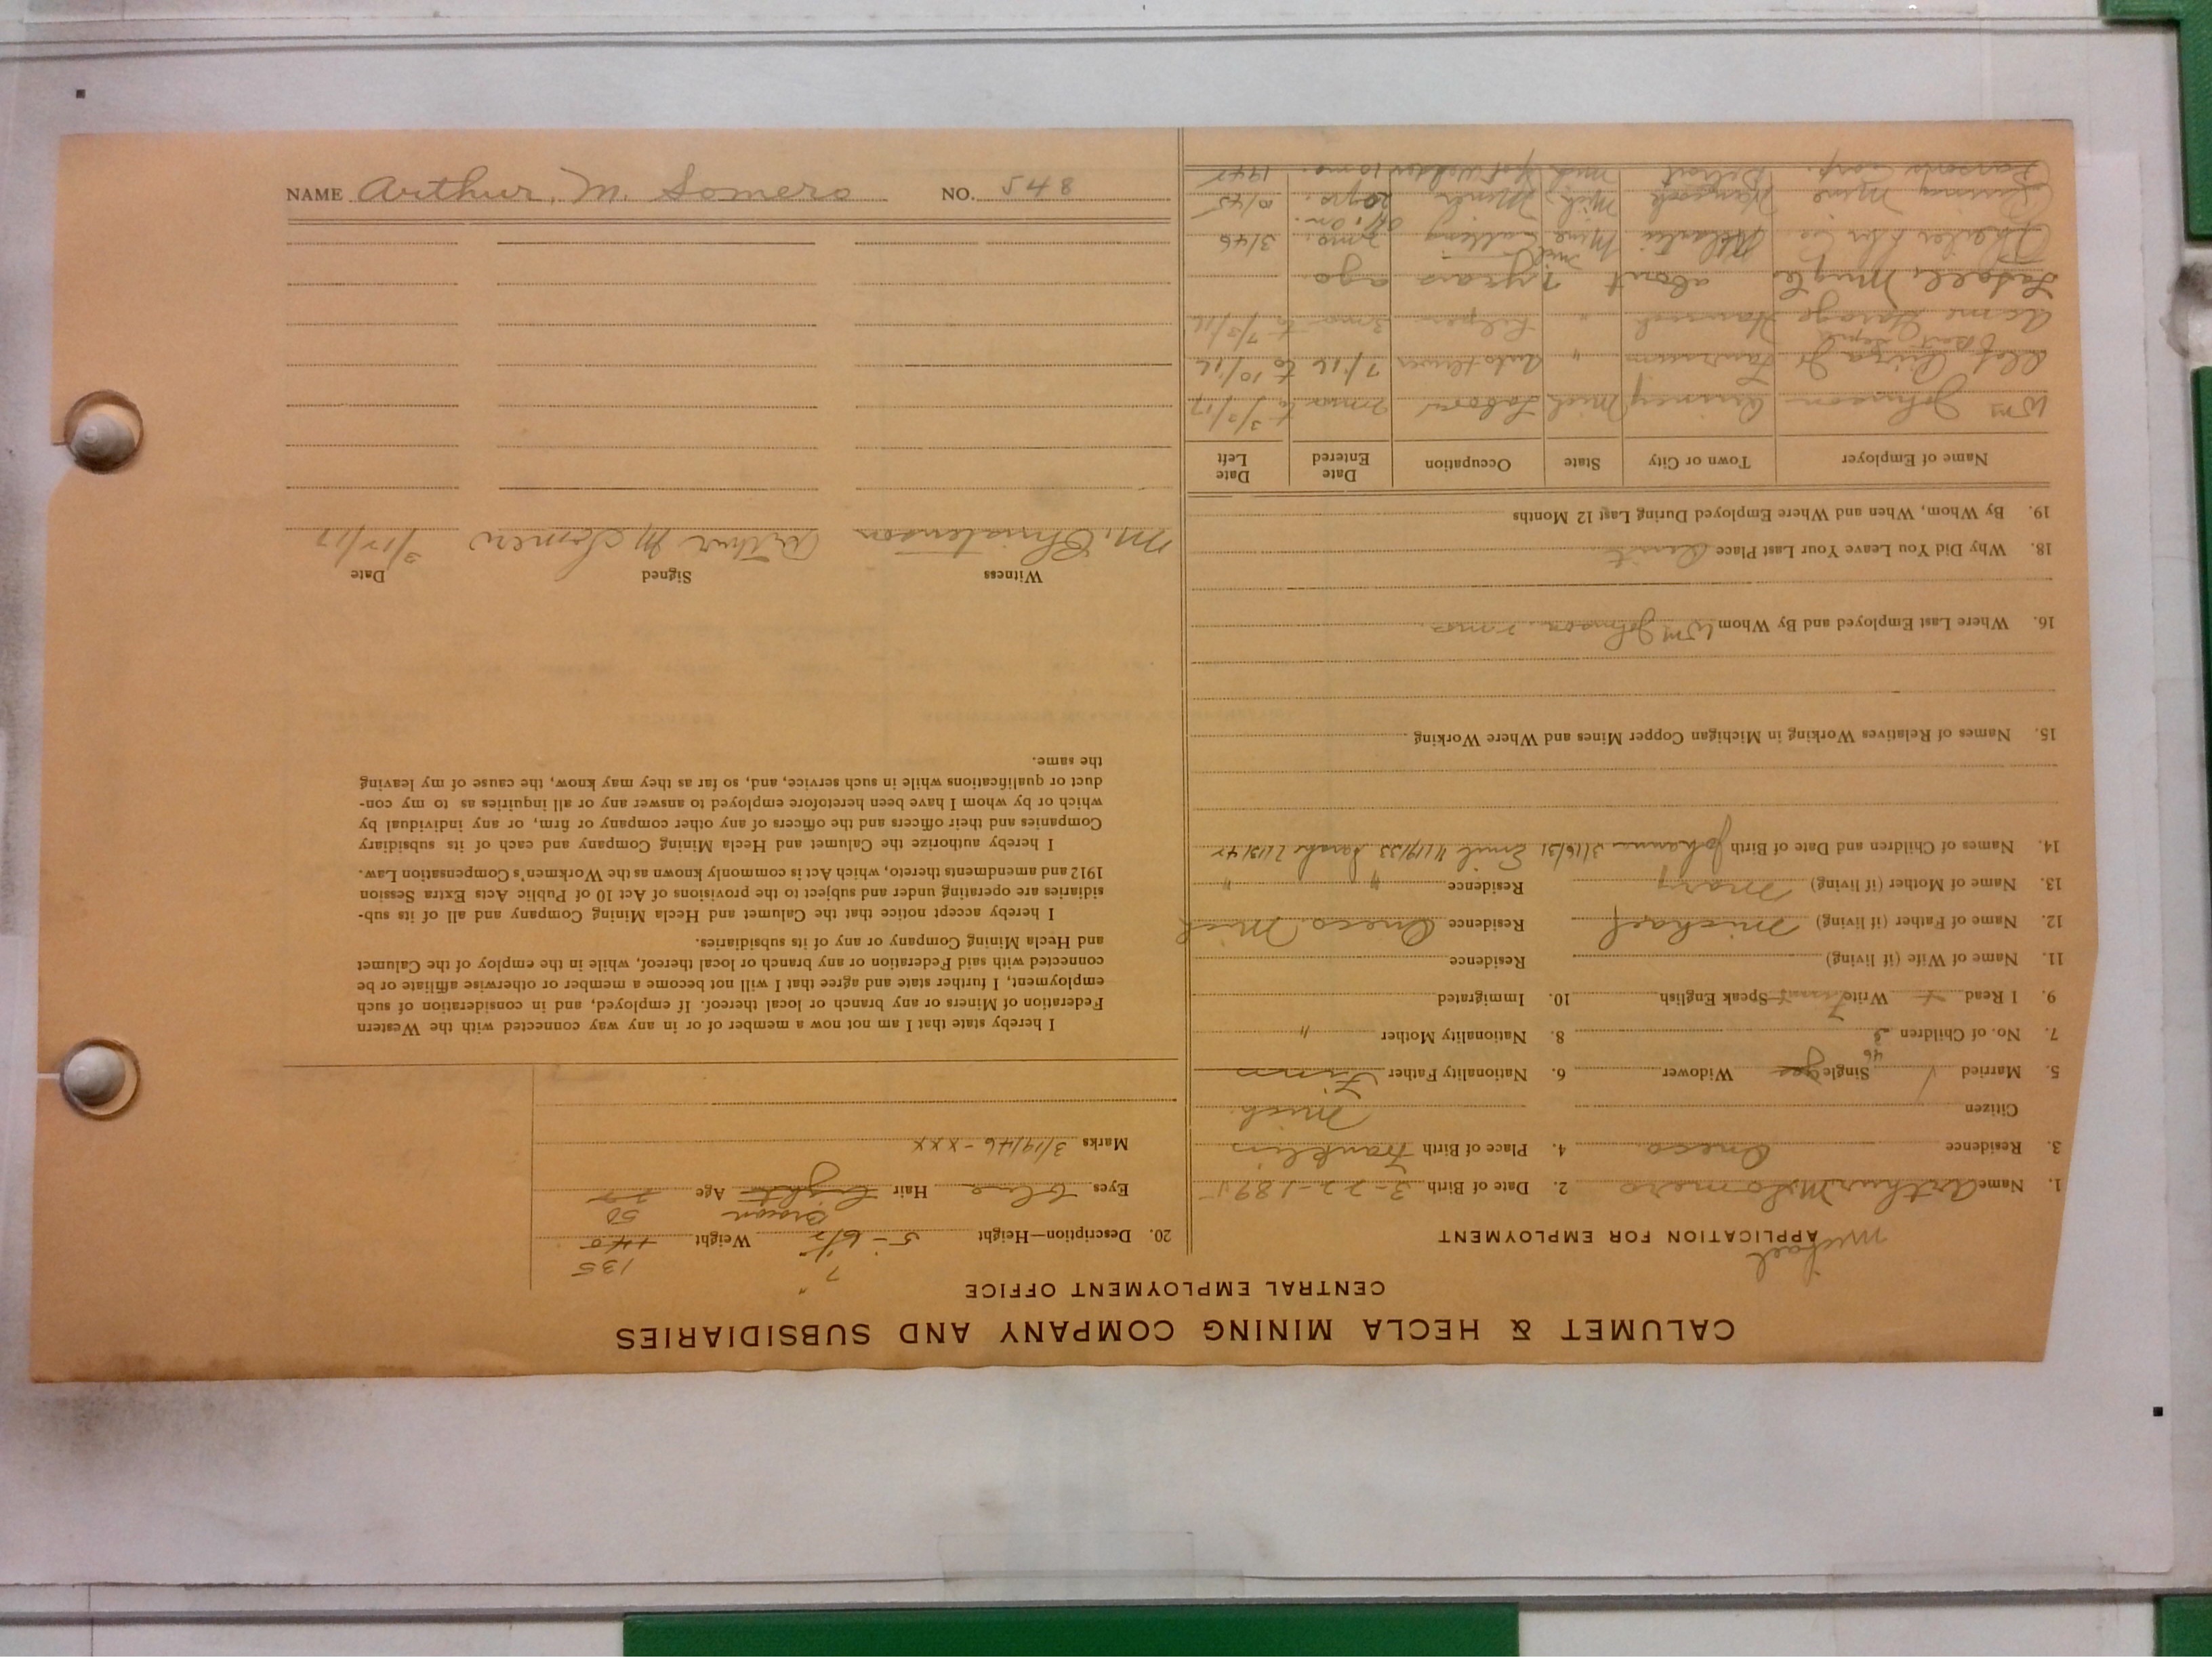 NAME Arthur. M. Somero NO. 548
CALUMET & HECLA MINING COMPANY AND SUBSIDIARIES
CENTRAL EMPLOYMENT OFFICE
APPLICATION FOR EMPLOYMENT
Michael
1. Name Arthur M Somero 2. Date of Birth 3-22-1895
3. Residence Oneco 4. Place of Birth Franklin
Citizen Mich.
5. Married √ 46 Single yes Widower 6. Nationality Father Finn
7. No. of Children 3 8. Nationality Mother "
9. I Read Write Speak English 10. Immigrated
11. Name of Wife (if living) Residence
12. Name of Father (if living) Michael Residence Oneco Mich
13. Name of Mother (if living) Mary Residence " "
14. Names of Children and Date of Birth Johanna 3/16/31 Emil 4/19/33
15. Names of Relatives Working in Michigan Copper Mines and Where Working
16. Where Last Employed and By Whom Wm Johnson 2 mos.
18. Why Did You Leave Your Last Place
19. By Whom, When and Where Employed During Last 12 Months
Name of Employer Town or City State Occupation Date Entered Date Left
Wm Johnson Quincy Mich Labor 2 mos to 3/3/17
Laurium " 7/16 to 10/16
Acme Garage Hancock " Helper 3 mo to 7/3/16
about 7 years ago
Atlantic Mine Mich 2 mo. 3/46
Quincy Mine Hancock Mich. Miner 20 yrs. off. on. 10/45
Parsons Corp. Detroit Mich Spot Welder 10 mo. 1945
20. Description—Height 5-6 1/2 7" Weight 140 135
Eyes Blue Hair Light Brown Age 22 50
Marks 3/19/46 - xxx
I hereby state that I am not now a member of or in any way connected with the Western
Federation of Miners or any branch or local thereof. If employed, and in consideration of such
employment, I further state and agree that I will not become a member or otherwise affiliate or be
connected with said Federation or any branch or local thereof, while in the employ of the Calumet
and Hecla Mining Company or any of its subsidiaries.
I hereby accept notice that the Calumet and Hecla Mining Company and all of its sub-
sidiaries are operating under and subject to the provisions of Act 10 of Public Acts Extra Session
1912 and amendments thereto, which Act is commonly known as the Workmen's Compensation Law.
I hereby authorize the Calumet and Hecla Mining Company and each of its subsidiary
Companies and their officers and the officers of any other company or firm, or any individual by
which or by whom I have been heretofore employed to answer any or all inquiries as to my con-
duct or qualifications while in such service, and, so far as they may know, the cause of my leaving
the same.
Witness Signed Date
M. Christenson Arthur M Somero 3/12/17